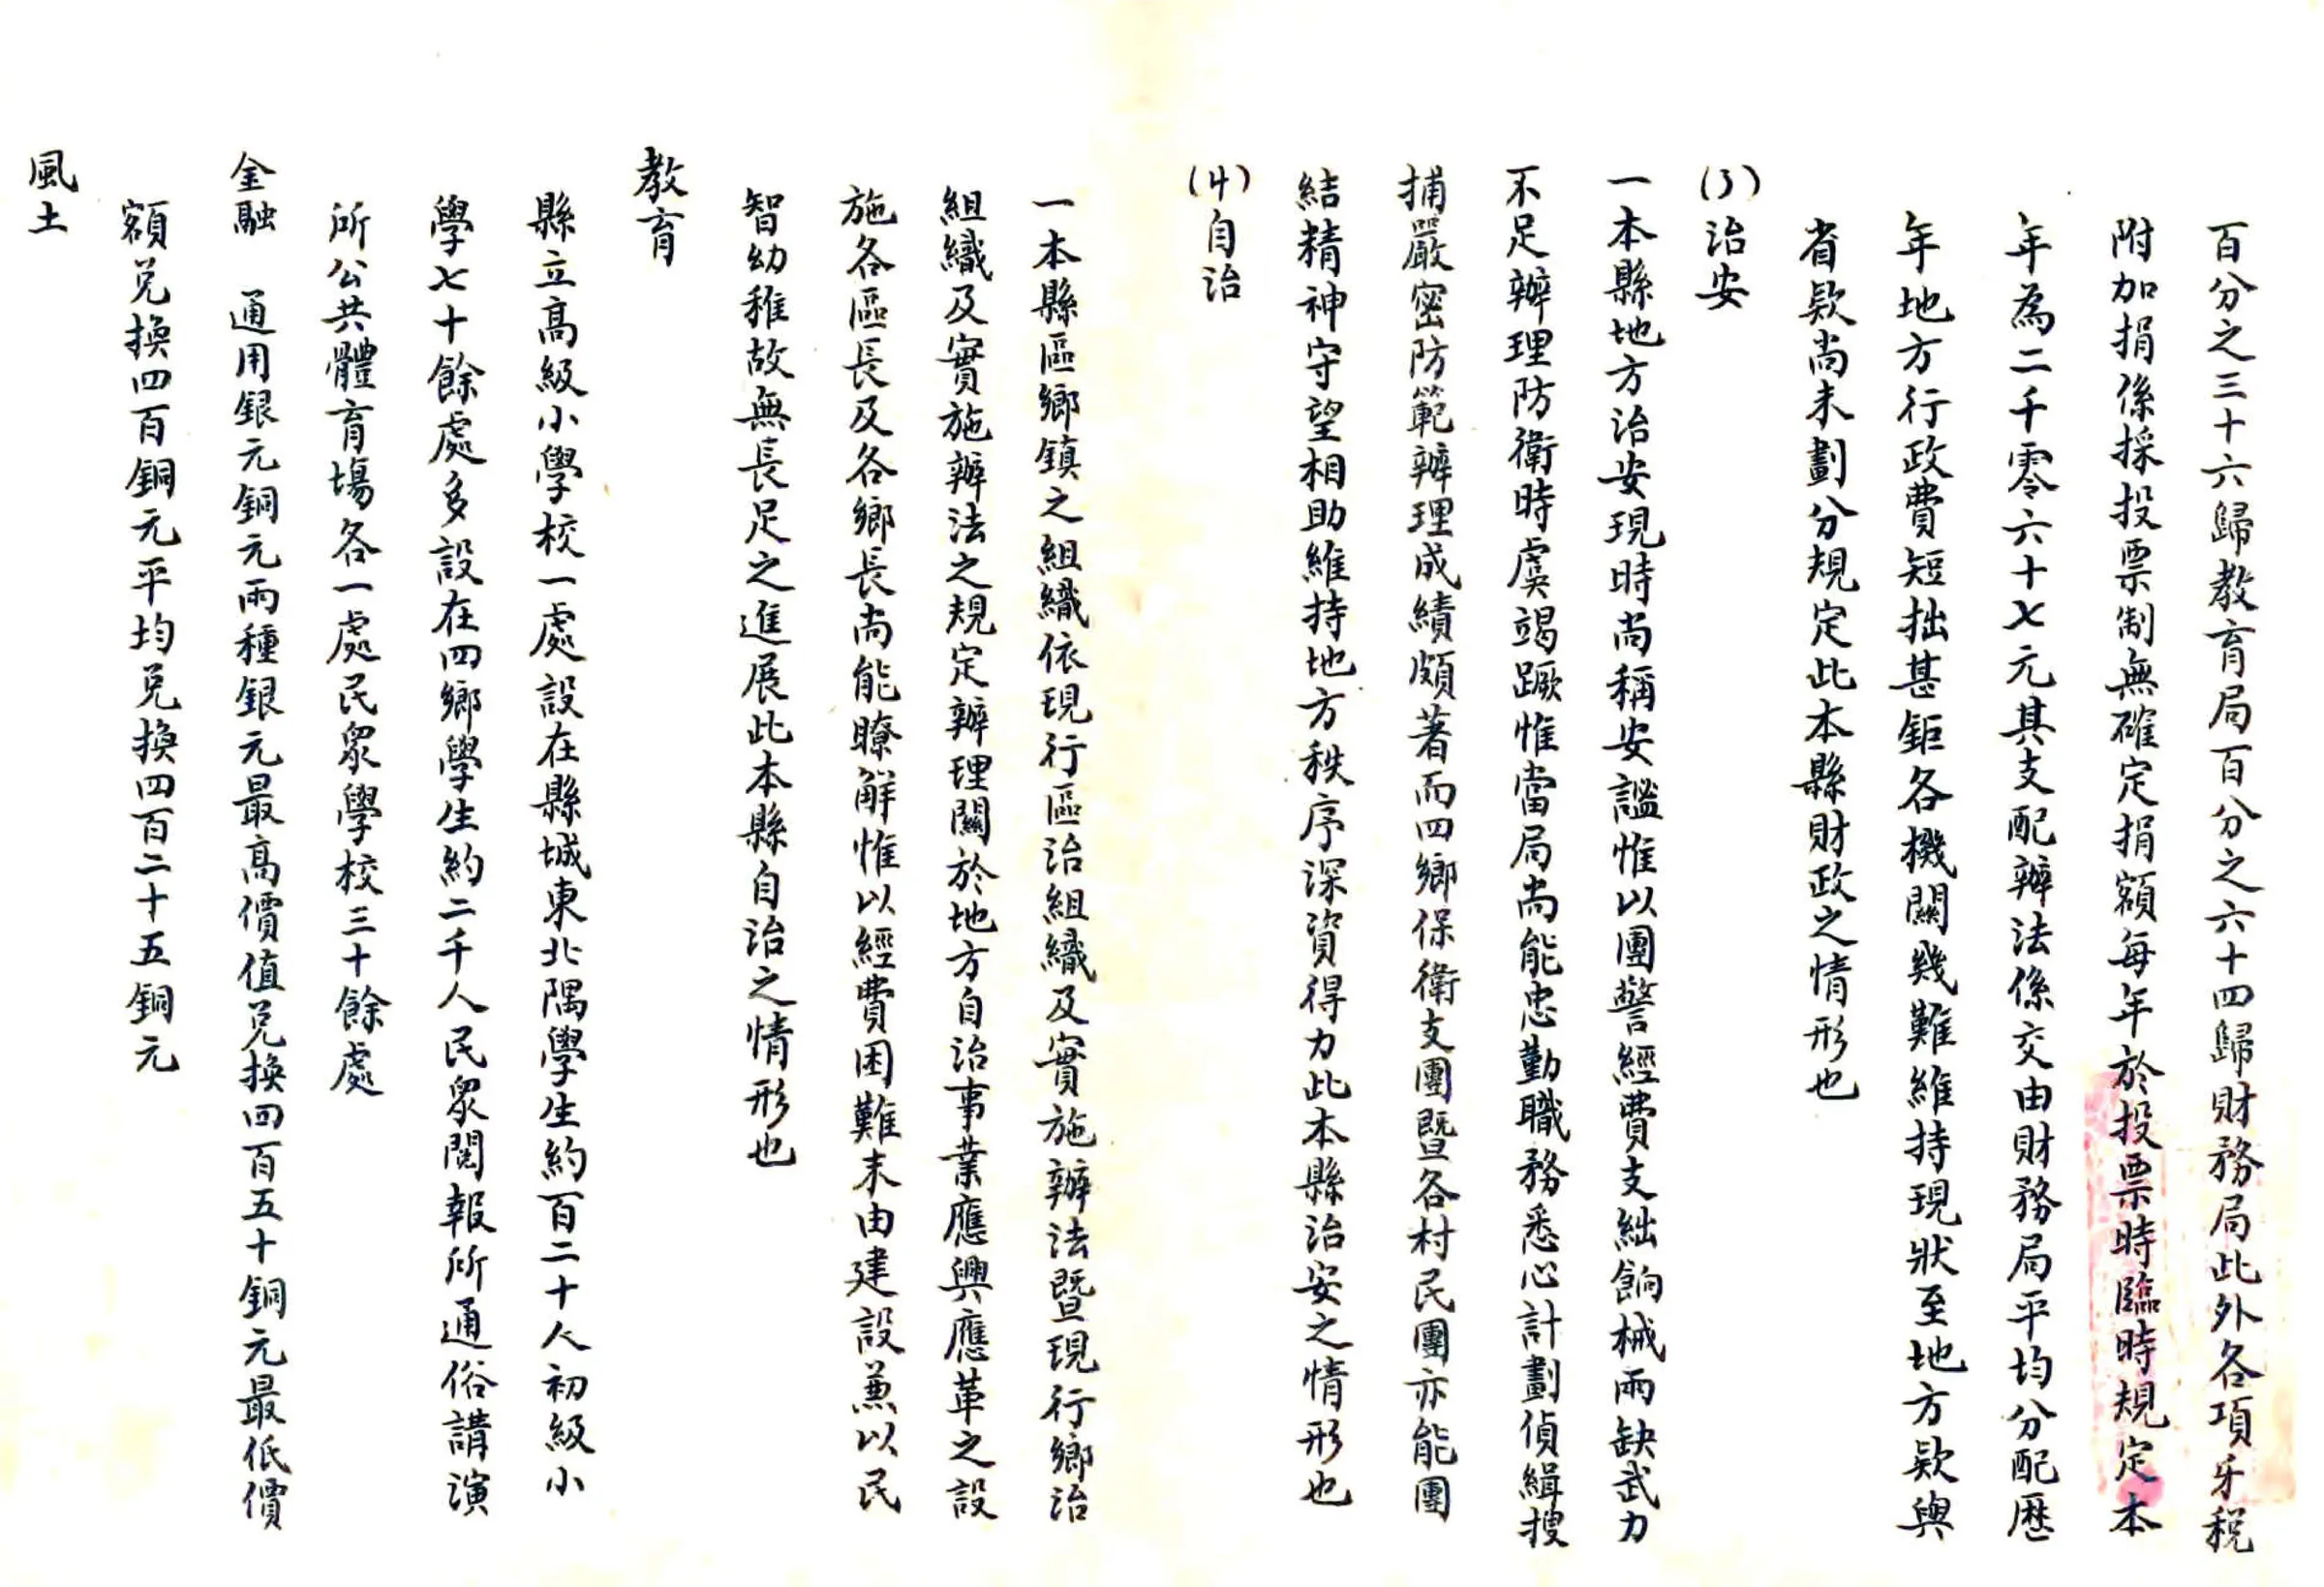 百分之三十六歸教育局百分之六十四歸財務局此外各項牙税
附加捐係採投票制無確定捐額每年於投票時臨時規定本
年為二千零六十七元其支配辦法係交由財務局平均分配歷
年地方行政費短拙甚鉅各機關幾難維持現狀至地方欵與
省欵尚未劃分規定此本縣財政之情形也
(3)治安
一本縣地方治安現時尚稱安謐惟以團警經費支絀餉械兩缺武力
不足辦理防衛時虞竭蹶惟當局尚能忠勤職務悉心計劃偵緝搜
捕嚴密防範辦理成績頗著而四鄉保衛支團暨各村民團亦能團
結精神守望相助維持地方秩序深資得力此本縣治安之情形也
(4)自治
一本縣區鄉鎮之組織依現行區治組織及實施辦法暨現行鄉治
組織及實施辦法之規定辦理關於地方自治事業應興應革之設
施各區長及各鄉長尚能瞭解惟以經費困難未由建設兼以民
智幼稚故無長足之進展此本縣自治之情形也
教育
縣立高級小學校一處設在縣城東北隅學生約百二十人初級小
學七十餘處多設在四鄉學生約二千人民眾閱報所通俗講演
所公共體育場各一處民眾學校三十餘處
金融 通用銀元銅元兩種銀元最高價值兌換四百五十銅元最低價
額兌換四百銅元平均兌換四百二十五銅元
風土